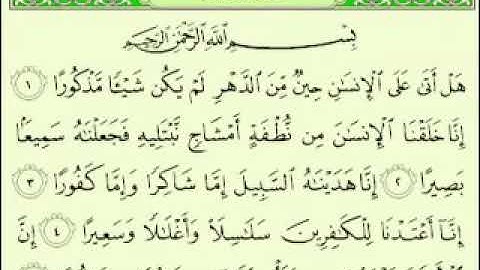 بِسْمِ اللَّهِ الرَّحْمَٰنِ الرَّحِيمِ
هَلْ أَتَىٰ عَلَى الْإِنسَٰنِ حِينٌ مِّنَ الدَّهْرِ لَمْ يَكُن شَيْـًٔا مَّذْكُورًا ١
إِنَّا خَلَقْنَا الْإِنسَٰنَ مِن نُّطْفَةٍ أَمْشَاجٍ نَّبْتَلِيهِ فَجَعَلْنَٰهُ سَمِيعًۢا
بَصِيرًا ٢ إِنَّا هَدَيْنَٰهُ السَّبِيلَ إِمَّا شَاكِرًا وَإِمَّا كَفُورًا ٣
إِنَّآ أَعْتَدْنَا لِلْكَٰفِرِينَ سَلَٰسِلَا۟ وَأَغْلَٰلًا وَسَعِيرًا ٤ إِنَّ